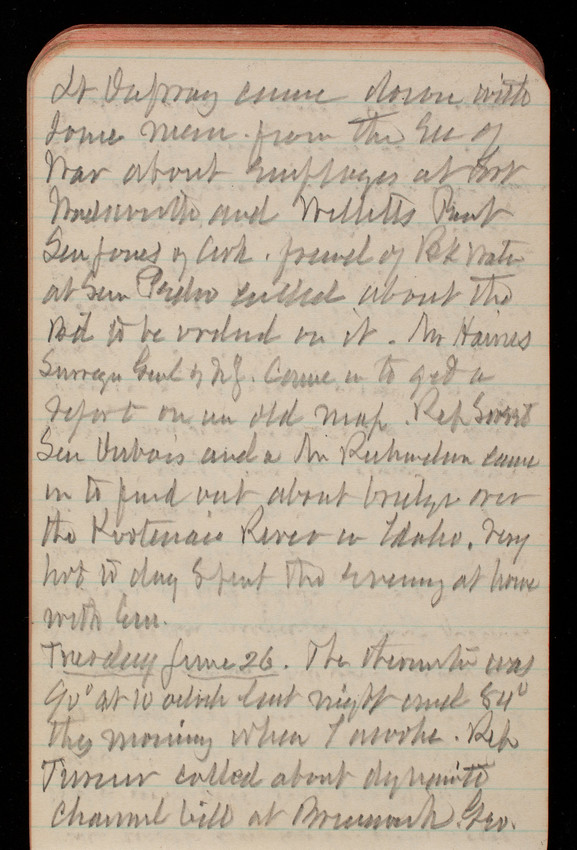 Lt Dupray came down with
some mem. from the Sec of
War about employees at Fort
Wadsworth and Willetts Point
Sen Jones of Ark. friend of Bk Water
at San Pedro called about the
Bd to be ordered on it. Mr Haines
Surveyr Genl of N.J. Came in to get a
report on an old map. Rep Sweet
Sen Dubois and a Mr Richardson came
in to find out about bridge over
the Kootenais River in Idaho. Very
hot to day Spent the evening at home
with
Tuesday June 26. The thermtr was
90° at 10 oclock last night and 84°
this morning when I awoke. Rep
Turner called about dynamite
channel bill at Brunswick Geo.